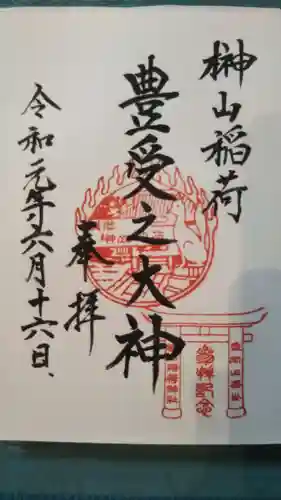 榊山稲荷
豊受之大神
奉拝
令和元年六月十六日、
参拝記念